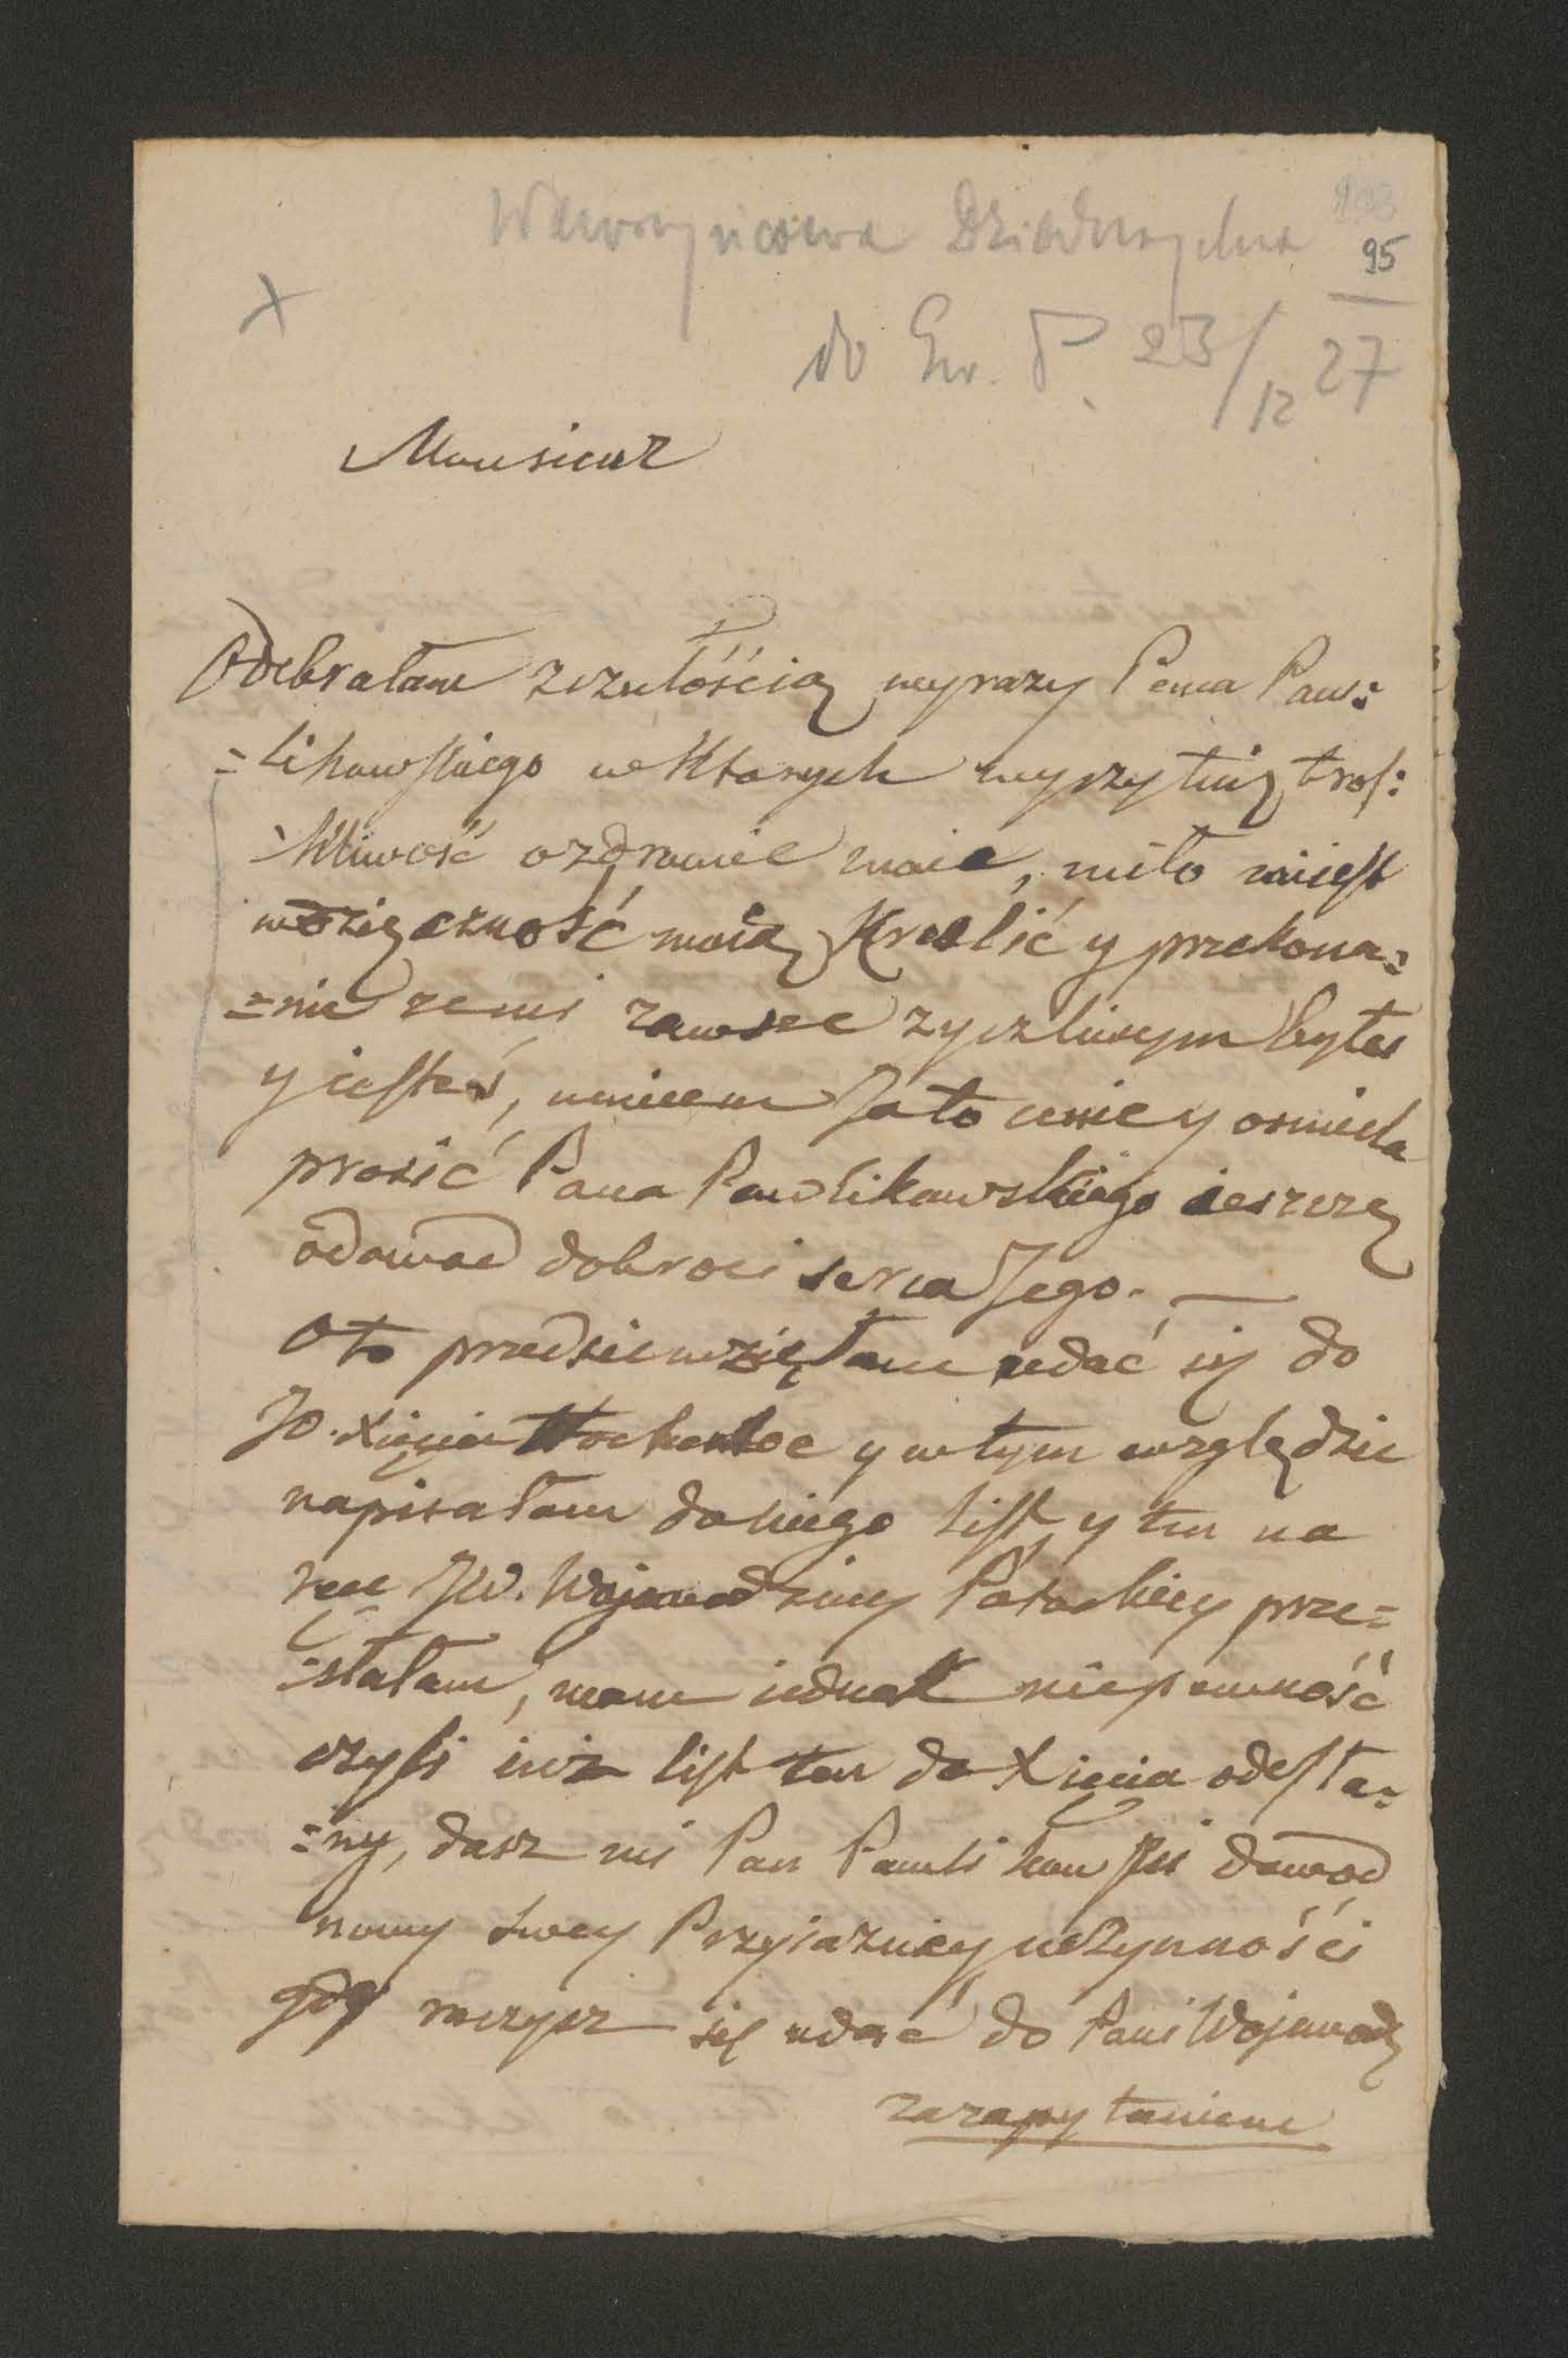 Wawrzyńcowa Dzieduszycka
95
do Gw. P. 23/12 27
x
Monsieur
Odebrałam zczułością wyrazy Pana Paw:
=likowskiego w Których wyczytuię tros:
kliwość ozdrowie moie, miło miiest
wdzięczność moią Kreślić y przekona=
=nie zemi zawsze zyczliwym byłes
y iesteś, umiem Ja to cenić y osmiela
prosić Pana Pawlikowskiego ieszczę
odowod dobroci serca Jego. —
Oto przedsiewzięłam udać się do
JO. Xięcia Hochenloe y wtym względzie
napisałam doniego list, y ten na
ręce JW. Wojewodziny Potockiey prze=
=słałam, mam iednak niepewność
czyli iuż list ten do Xięcia odesła=
=ny, dasz mi Pan Pawlikowski dowod
nowy swey Przyiazney uczynności
gdy raczysz się udać do Pani Wojewodz
zazapytaniem